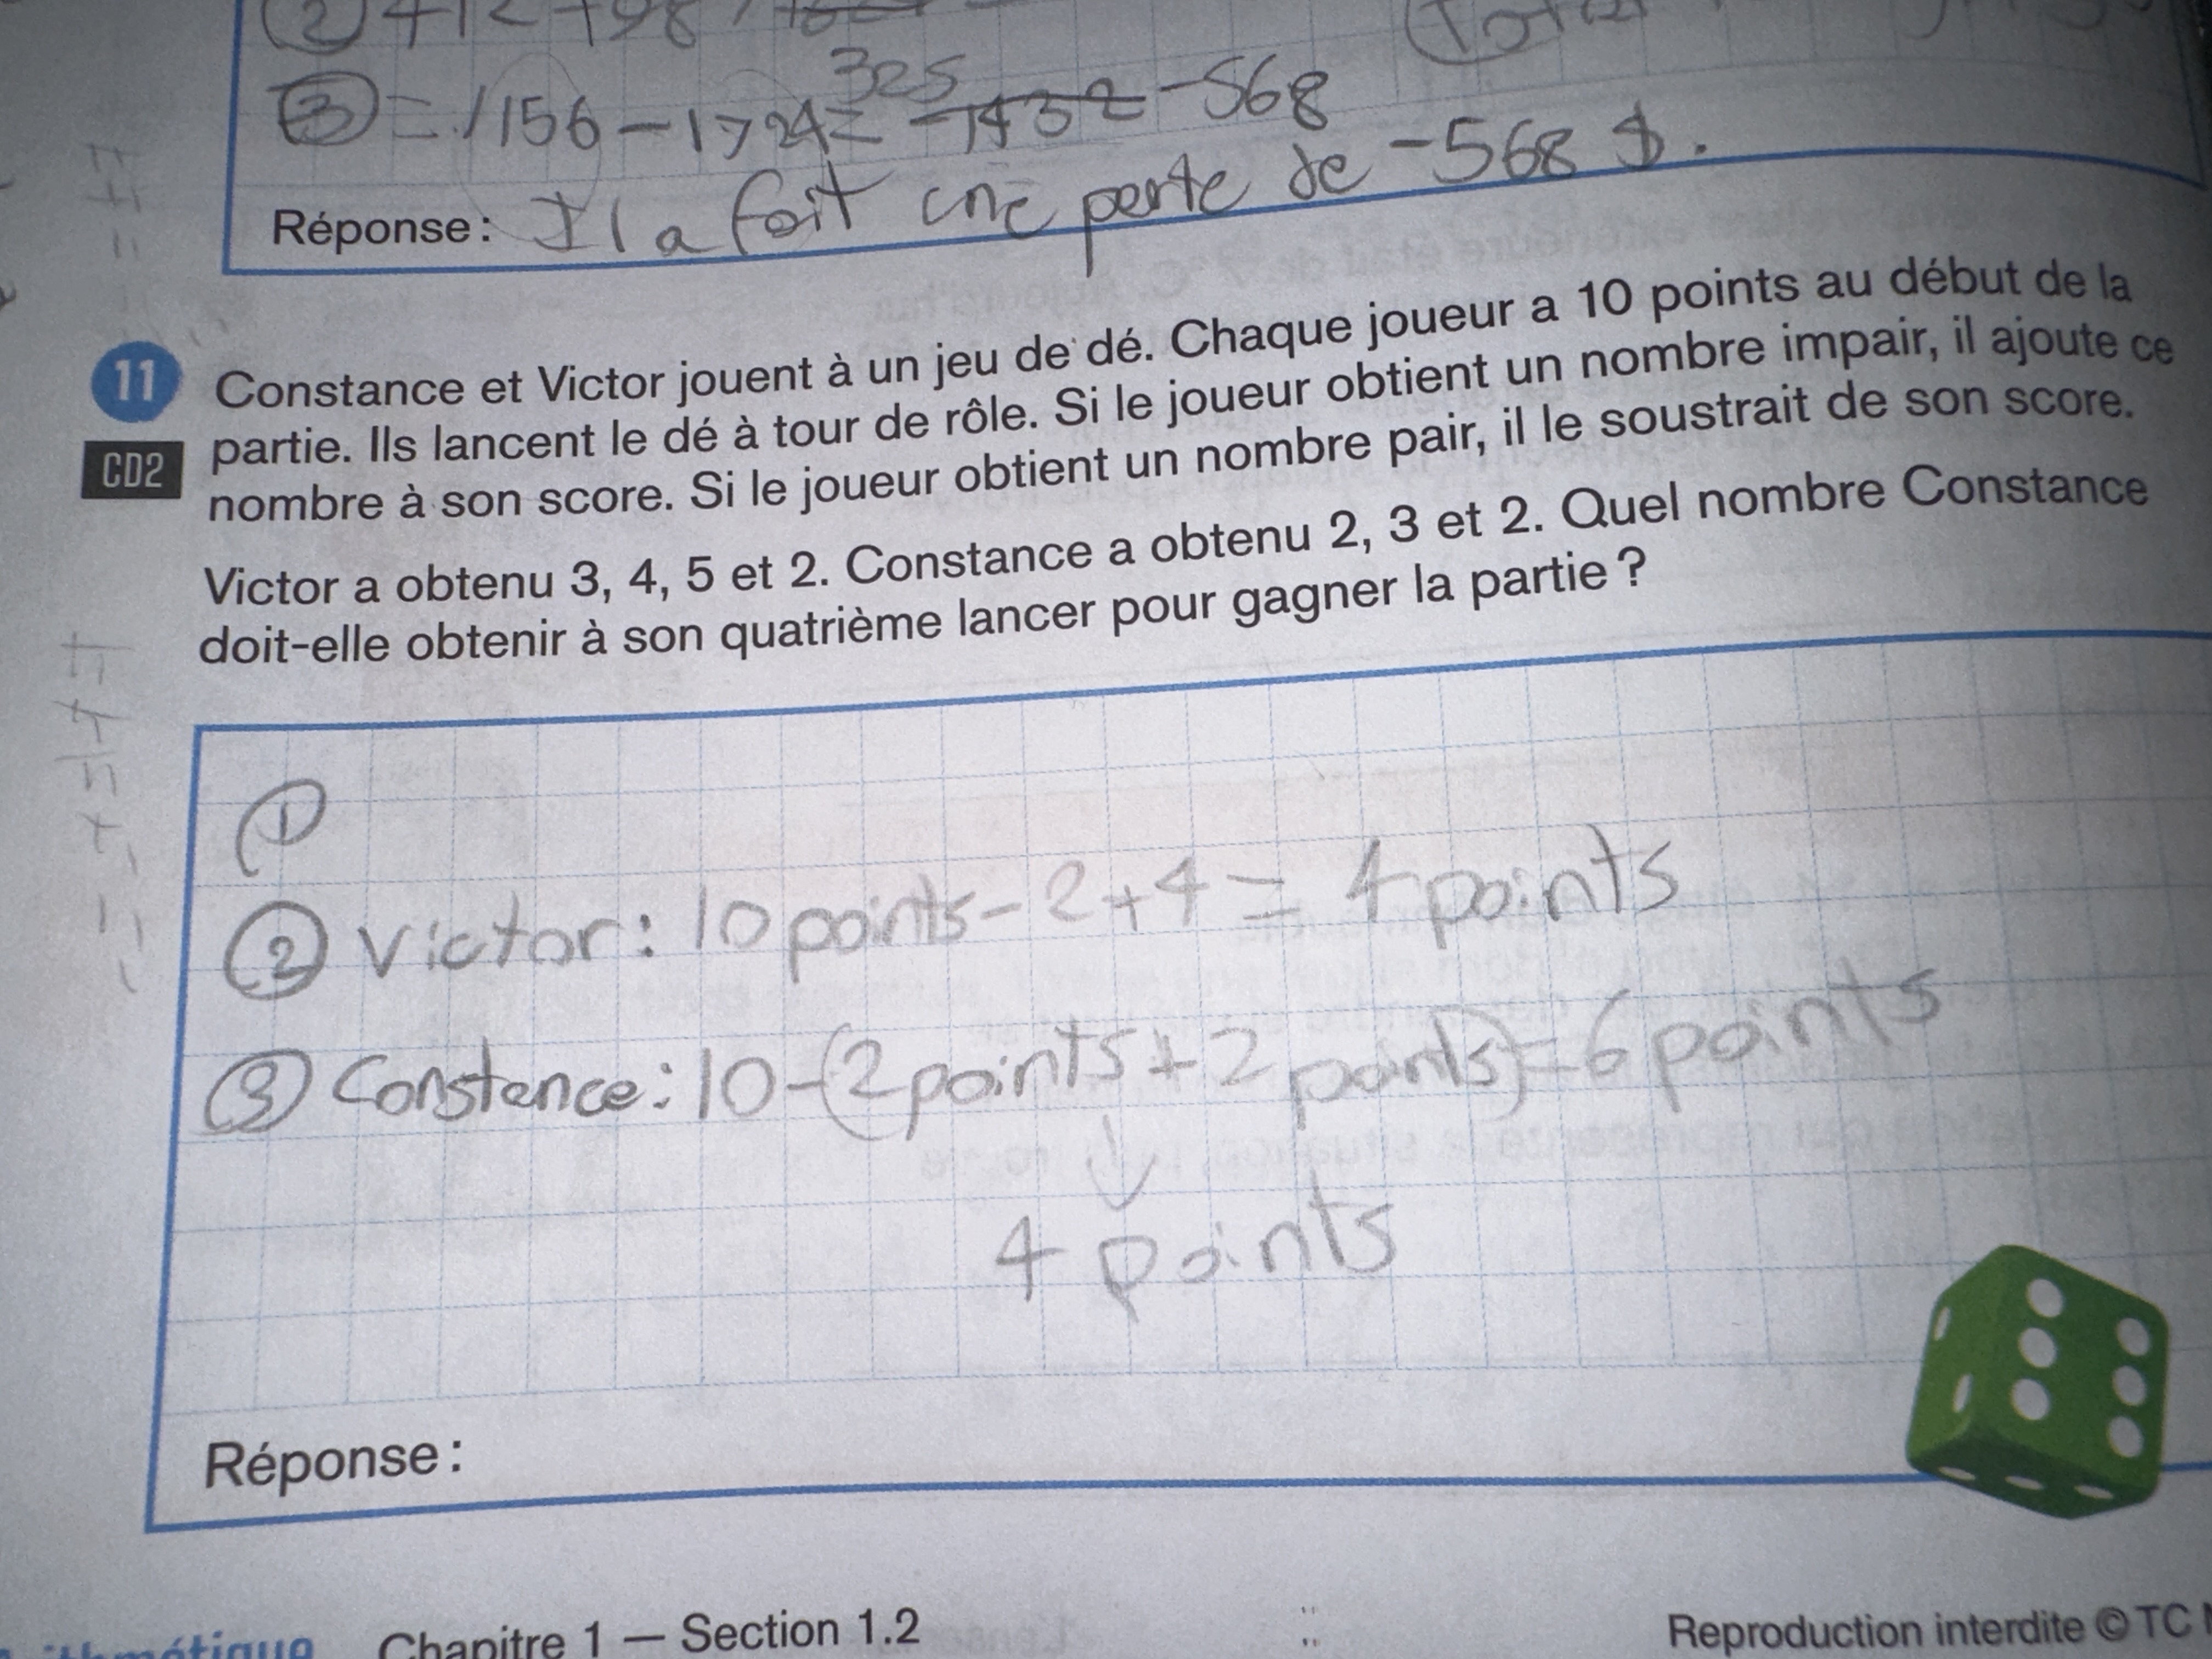 ③ = 1156 - 1724 = 325 -1432 -568
Réponse : Il a fait une perte de -568 $.
11 Constance et Victor jouent à un jeu de dé. Chaque joueur a 10 points au début de la
CD2 partie. Ils lancent le dé à tour de rôle. Si le joueur obtient un nombre impair, il ajoute ce
nombre à son score. Si le joueur obtient un nombre pair, il le soustrait de son score.
Victor a obtenu 3, 4, 5 et 2. Constance a obtenu 2, 3 et 2. Quel nombre Constance
doit-elle obtenir à son quatrième lancer pour gagner la partie ?
①
② Victor : 10 points - 2 + 4 = 4 points
③ Constence : 10 - (2 points + 2 points) = 6 points
4 points
Réponse :
Chapitre 1 — Section 1.2
Reproduction interdite © TC